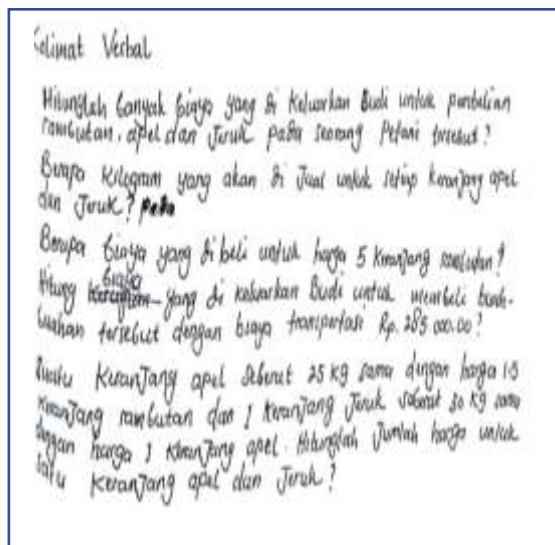 Kalimat Verbal
Hitunglah banyak biaya yang di keluarkan Budi untuk pembelian
rambutan, apel dan Jeruk pada seorang Petani tersebut?
Berapa Kilogram yang akan di Jual untuk setiap keranjang apel
dan Jeruk?
Berapa biaya yang di beli untuk harga 5 Keranjang rambutan?
Hitung biaya yang di keluarkan Budi untuk membeli buah-
buahan tersebut dengan biaya transportasi Rp. 285.000.00?
Suatu Keranjang apel seberat 25 kg sama dengan harga 1.5
Keranjang rambutan dan 1 Keranjang Jeruk seberat 30 kg sama
dengan harga 1 Keranjang apel. Hitunglah Jumlah harga untuk
satu Keranjang apel dan Jeruk?